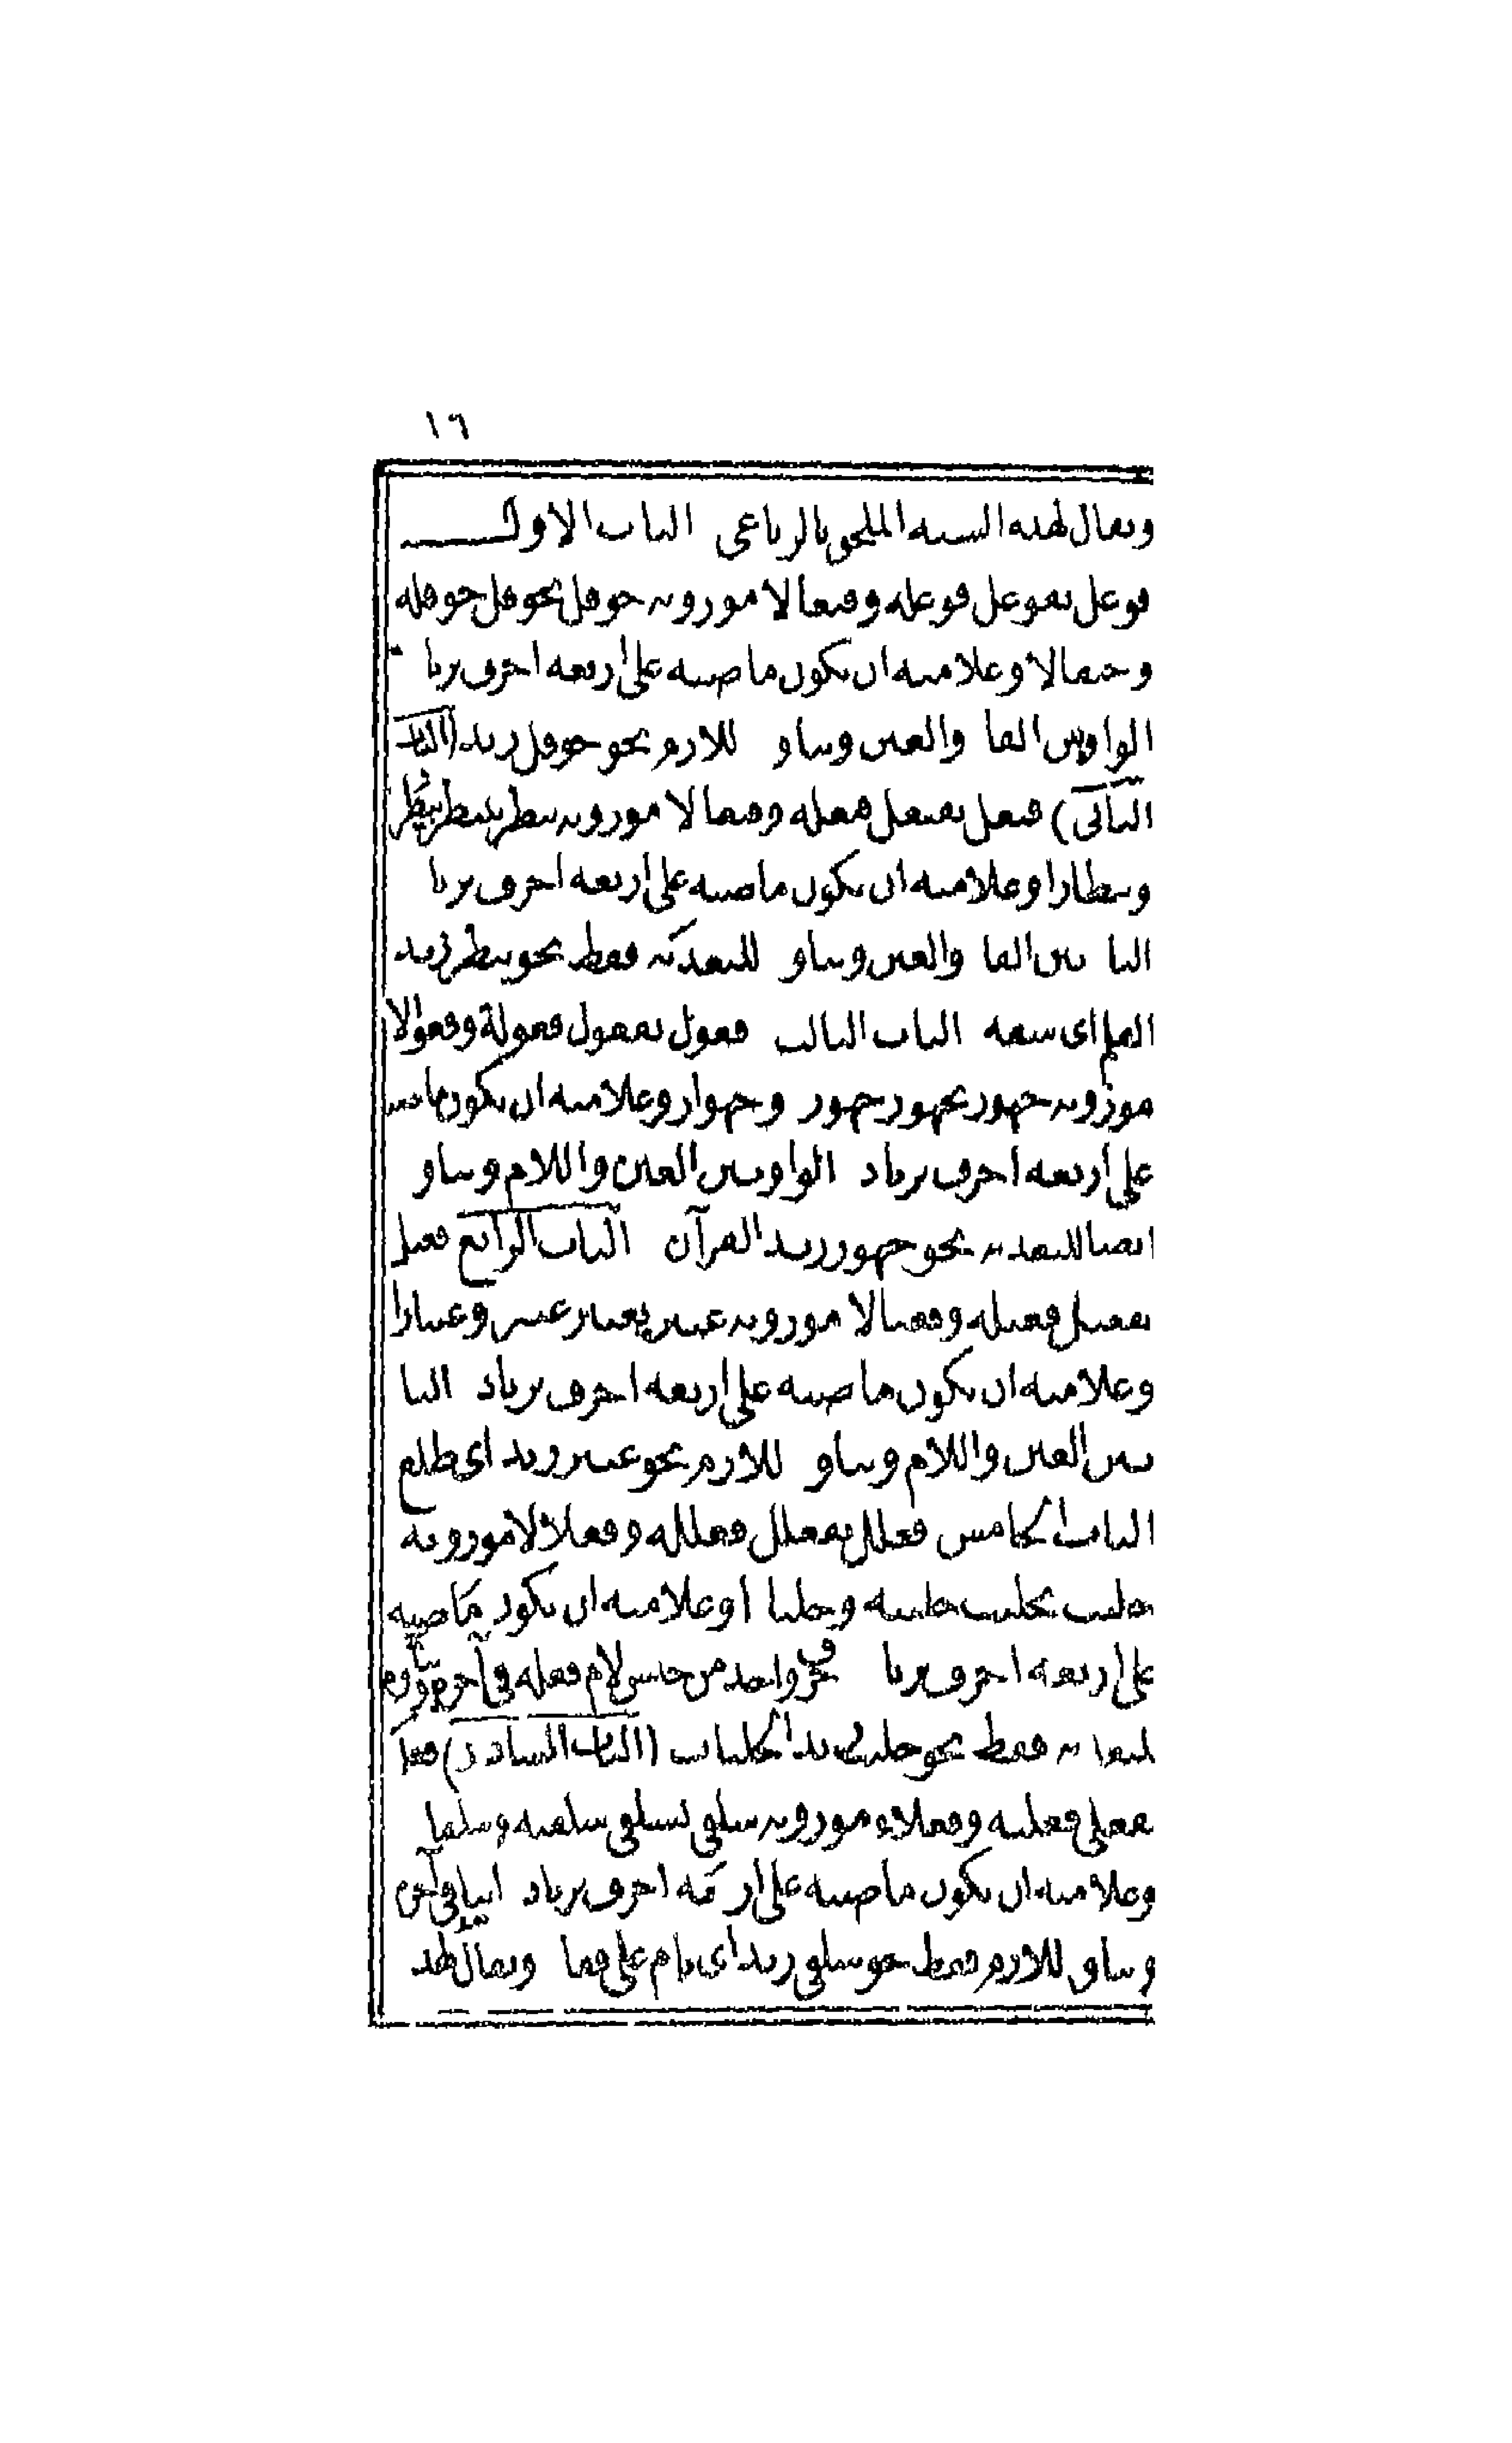 ١٦
ويقال لهذه الستة الملحق بالرباعى الباب الاول
فوعل يفوعل فوعلة وفيعالا موزونه حوقل يحوقل حوقلة
وحيقالا وعلامته ان يكون ماضيه على اربعة احرف بزيادة
الواو بين الفا والعين وبناو للازم نحو حوقل زيد (الباب
الثانى) فيعل يفيعل فيعلة وفيعالا موزونه بيطر يبيطر بيطرة
وبيطارا وعلامته ان يكون ماضيه على اربعة احرف بزيادة
اليا بين الفا والعين وبناو للتعدية فقط نحو بيطر زيد
القلم اى شقه الباب الثالث فعول يفعول فعولة وفعوالا
موزونه جهور يجهور جهور وجهوار وعلامته ان يكون ماضيه
على اربعة احرف بزياد الواو بين العين واللام وبناو
ايضا للتعدية نحو جهور زيد القرآن الباب الرابع فعيل
يفعيل فعيلة وفعيالا موزونه عثير يعثير عثيرة وعثيارا
وعلامته ان يكون ماضيه على اربعة احرف بزياد اليا
بين العين واللام وبناو للازم نحو عثير زيد اى طلع
الباب الخامس فعلل يفعلل فعللة وفعلالا موزونه
جلبب يجلبب جلببة وجلبابا وعلامته ان يكون ماضيه
على اربعة احرف بزيادة حرف واحد من جنس لام فعله فى آخره وبناؤه
للتعدية فقط نحو جلبب زيد الجلباب (الباب السادس) فعلى
يفعلى فعلية وفعلاء موزونه سلقى يسلقى سلقية وسلقا
وعلامته ان يكون ماضيه على اربعة احرف بزياد اليا فى آخره
وبناو للازم فقط نحو سلقى زيد اى نام على قفا ويقال لهذه